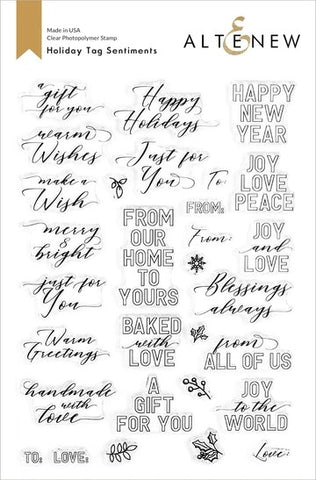 Made in USA
Clear Photopolymer Stamp
Holiday Tag Sentiments
ALTENEW
a
gift
for you
warm
Wishes
make a
Wish
merry
&
bright
just for
You
Warm
Greetings
handmade
with
love
TO:
LOVE:
Happy
Holidays
Just for
You
To:
FROM:
FROM
OUR
HOME
TO
YOURS
BAKED
with
LOVE
A
GIFT
FOR YOU
HAPPY
NEW
YEAR
JOY
LOVE
PEACE
From:
JOY
and
LOVE
Blessings
always
from
ALL OF US
JOY
to the
WORLD
Love: